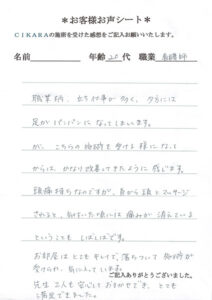 ＊お客様お声シート＊
ＣＩＫＡＲＡの施術を受けた感想をご記入お願いいたします。
名前 年齢 20 代 職業 看護師
職業柄、立ち仕事が多く、夕方には
足がパンパンになってしまいます。
が、こちらの施術を受ける様になって
からは、かなり改善してきたように感じます。
頭痛持ちなのですが、肩から頭とマッサージ
されると、気付いた頃には痛みが消えている
ということもしばしばです。
お部屋はとてもキレイで、落ちついて施術が
受けられ、気に入っています。
ご記入ありがとうございました。
先生2人も安心しておまかせでき、とても
満足できました。